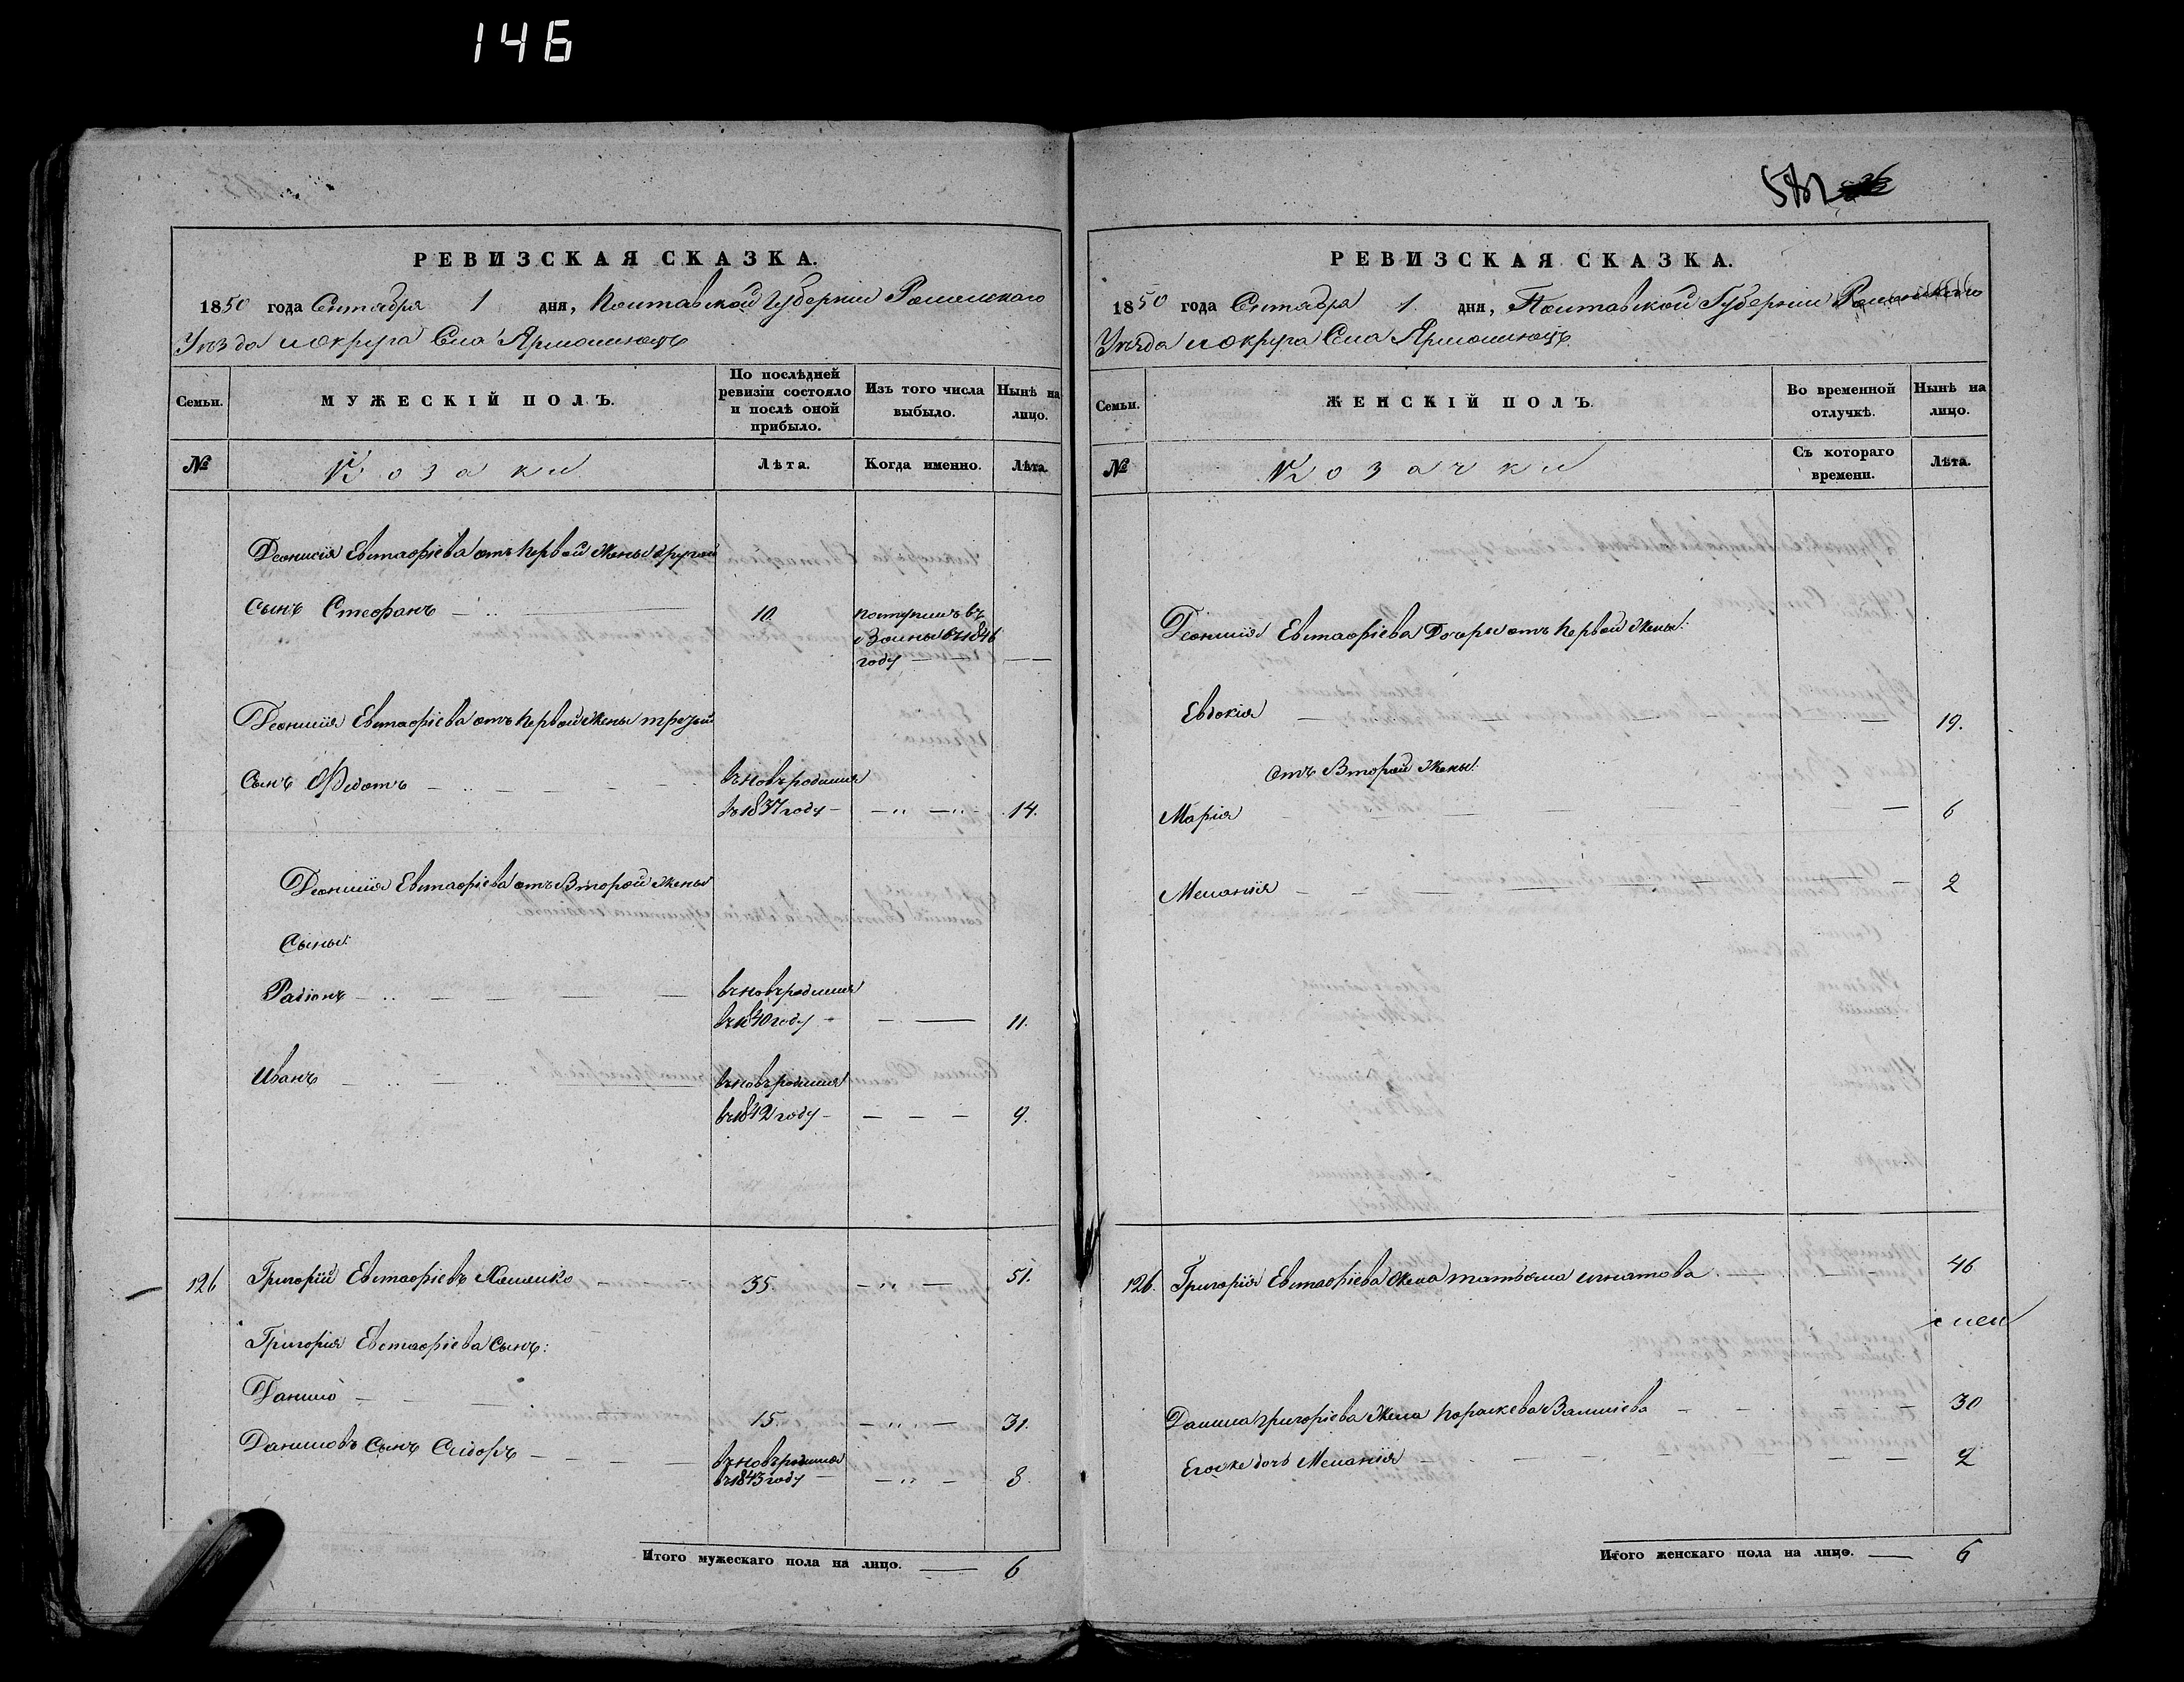 146
РЕВИЗСКАЯ СКАЗКА.
1850 года Сентября 1 дня, Полтавской Губерніи Роменскаго
Уезда и округа Села Ярмолинець
Семьи.
МУЖЕСКІЙ ПОЛЪ.
По послѣдней ревизіи состояло и послѣ оной прибыло.
Изъ того числа выбыло.
Нынѣ на лицо.
№
Козаки
Лѣта.
Когда именно.
Лѣта.
Деонисія Евстафіева отъ Первой Жены другой
Сынъ Стефанъ 10. поступилъ въ
въ 1846
году
Деонисія Евстафіева отъ Первой Жены третій
Сынъ Федотъ вновь родился
въ 1837 году 14.
Деонисія Евстафіева отъ Второй Жены
Сыны:
Радіонъ вновь родился
въ 1840 году 11.
Иванъ вновь родился
въ 1842 году 9.
126 Григорій Евстафіевъ 35. 51.
Григорія Евстафіева Сынъ:
Данило 15. 31.
Даниловъ Сынъ Сидоръ вновь родился
въ 1843 году 8
Итого мужескаго пола на лицо. 6
РЕВИЗСКАЯ СКАЗКА.
1850 года Сентября 1. дня, Полтавской Губерніи Роменскаго
Уезда и округа Села Ярмолинець
Семьи.
ЖЕНСКІЙ ПОЛЪ.
Во временной отлучкѣ.
Нынѣ на лицо.
№
Козачки
Съ котораго времени.
Лѣта.
Деонисія Евстафіева Дочери отъ Первой Жены:
Евдокія 19.
отъ Второй Жены:
Марія 6
Меланія 2
126. Григорія Евстафіева Жена Татьяна Игнатова 46
Данила Григоріева Жена Параскева 30
Его же дочь Меланія 2
Итого женскаго пола на лицо. 6